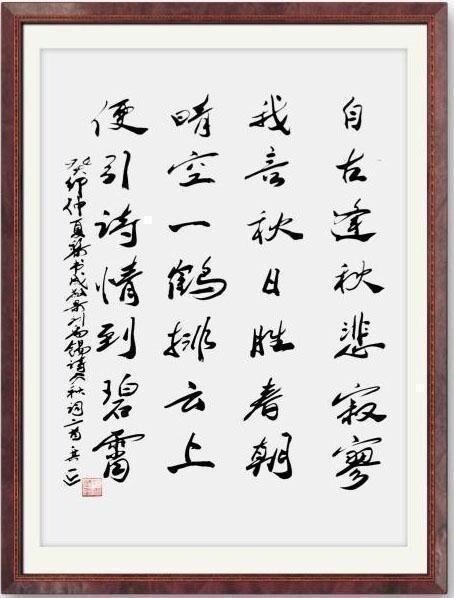 自古逢秋悲寂寥
我言秋日胜春朝
晴空一鹤排云上
便引诗情到碧霄
癸卯仲夏 刘禹锡诗 秋词一首